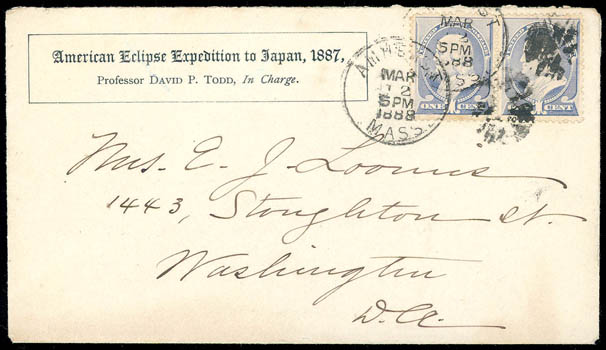 American Eclipse Expedition to Japan, 1887,
Professor DAVID P. TODD, In Charge.
AMHERST
MAR
12
5PM
1888
MASS.
MAR
2
5PM
1888
MASS
ONE CENT
CENT
Mrs. E. J. Loomis
1443, Stoughton St.
Washington
D.C.